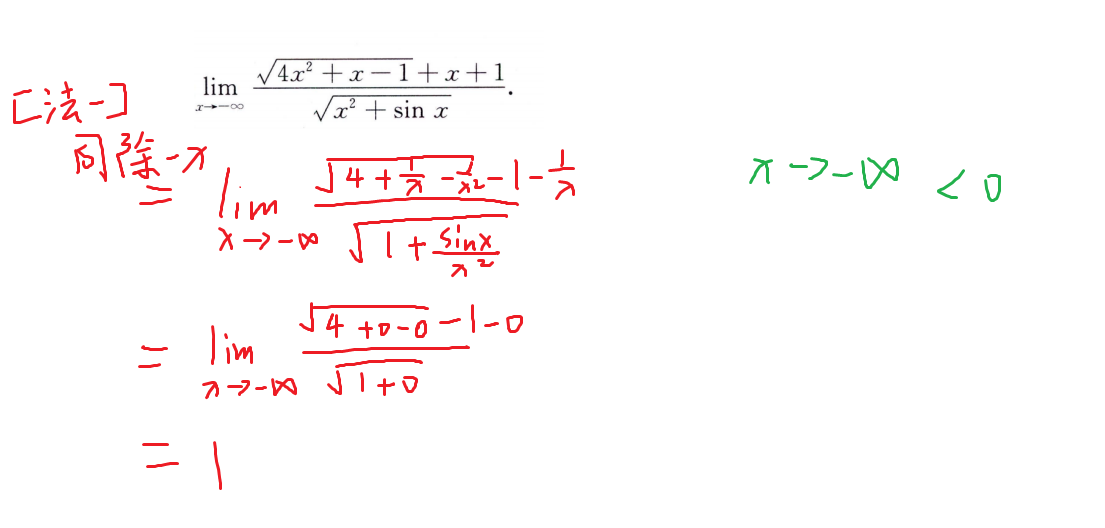 lim x→−∞ (√(4x² + x − 1) + x + 1) / √(x² + sin x).
[法一]
同除−x
= lim x→−∞ (√(4 + 1/x − 1/x²) − 1 − 1/x) / √(1 + sinx/x²)
x→−∞ < 0
= lim x→−∞ (√(4+0−0) − 1 − 0) / √(1+0)
= 1